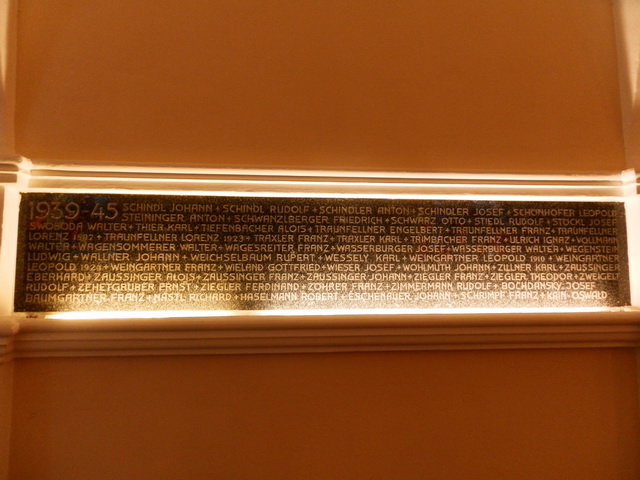 1939-45 SCHINDL JOHANN + SCHINDL RUDOLF + SCHINDLER ANTON + SCHINDLER JOSEF + SCHÖNHOFER LEOPOLD
STEININGER ANTON + SCHWANZLBERGER FRIEDRICH + SCHWARZ OTTO + STIEDL RUDOLF + STÖCKL JOSEF
SWOBODA WALTER + THIER KARL + TIEFENBACHER ALOIS + TRAUNFELLNER ENGELBERT + TRAUNFELLNER FRANZ + TRAUNFELLNER
LORENZ + TRAUNFELLNER LORENZ 1923 + TRAXLER FRANZ + TRAXLER KARL + TAMBACHER FRANZ + ULRICH IGNAZ + VOLLMANN
WALTER + WAGENSOMMER WALTER + WAGESREITER FRANZ + WASSERBURGER JOSEF + WASSERBURGER WALTER + WEGENSTEIN
LUDWIG + WALLNER JOHANN + WEICHSELBAUM RUPERT + WESSELY KARL + WEINGARTNER LEOPOLD 1910 + WEINGARTNER
LEOPOLD 1923 + WEINGARTNER FRANZ + WIELAND GOTTFRIED + WIESER JOSEF + WOHLMUTH JOHANN + ZILLNER KARL + ZAUSSINGER
ERHARD + ZAUSSINGER ALOIS + ZAUSSINGER FRANZ + ZAUSSINGER JOHANN + ZIEGLER FRANZ + ZIEGLER THEODOR + ZWECKL
RUDOLF + ZEHETGRUBER ERNST + ZIEGLER FERDINAND + ZÖHRER FRANZ + ZIMMERMANN RUDOLF + BOCHDANSKY JOSEF
BAUMGARTNER FRANZ + NASTL RICHARD + HASELMANN ROBERT + ESCHENAUER JOHANN + SCHRIMPF FRANZ + KAIN OSWALD